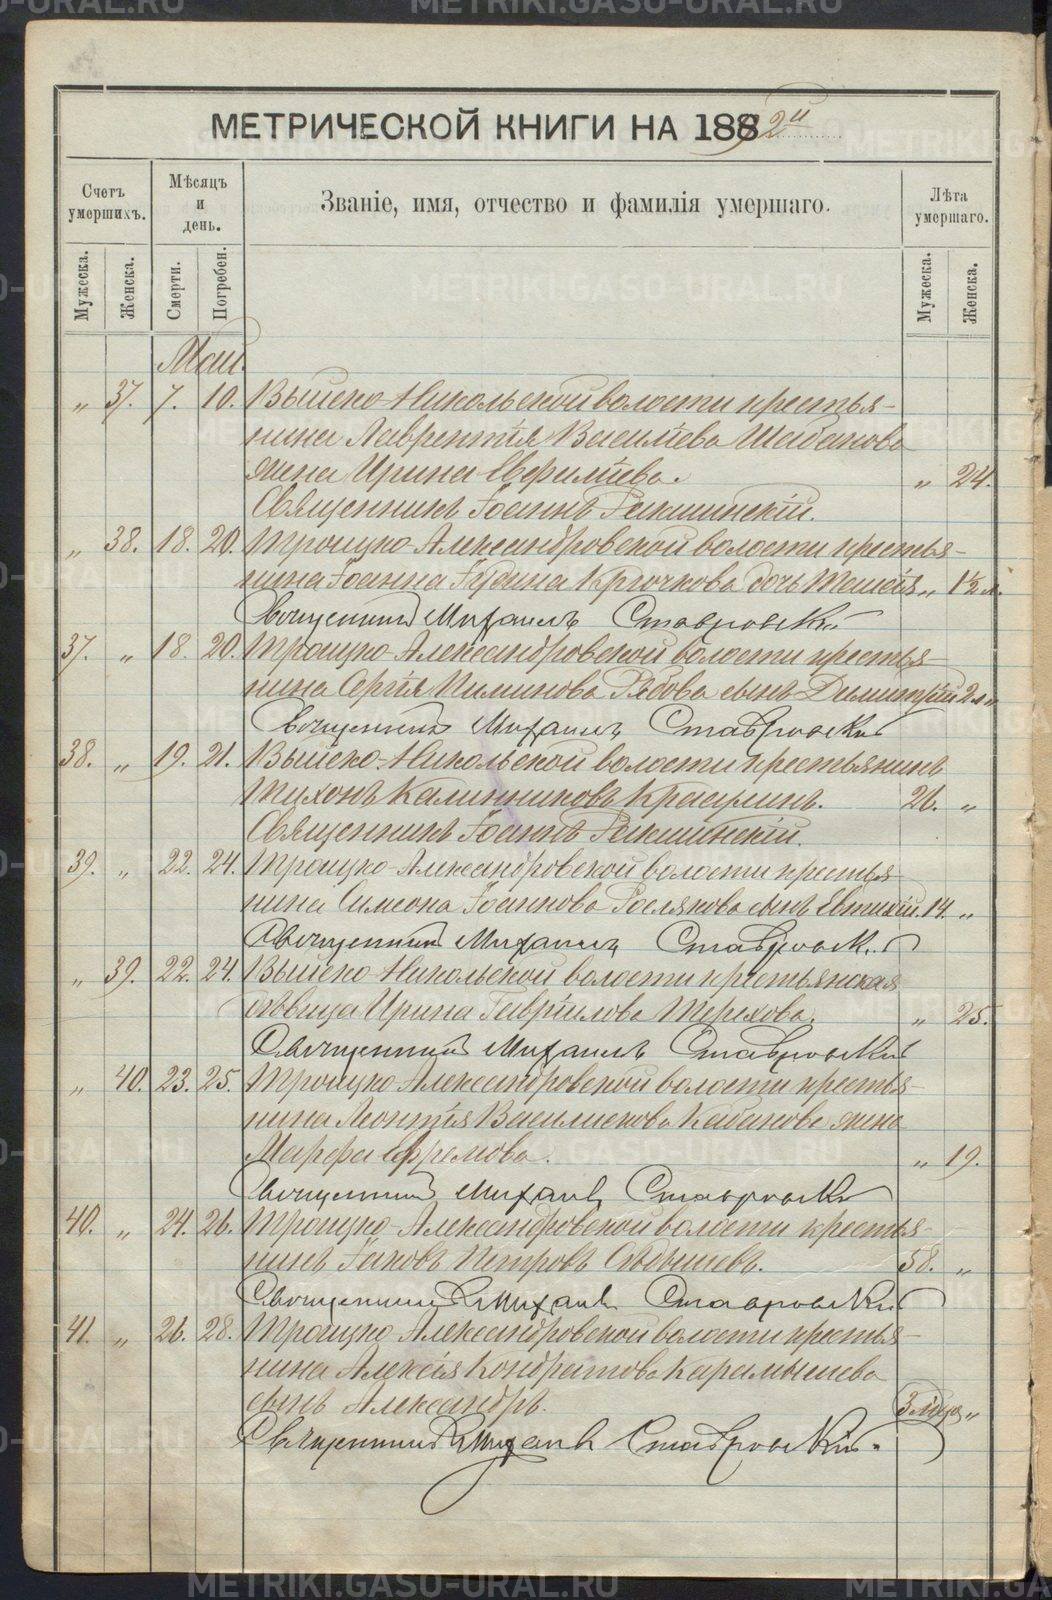 МЕТРИЧЕСКОЙ КНИГИ НА 1882й
Счетъ умершихъ.
Мѣсяцъ и день.
Званіе, имя, отчество и фамилія умершаго.
Лѣта умершаго.
Мужеска. Женска. Смерти. Погребен. Мужеска. Женска.
Май.
„ 37. 7. 10. Выйско-Никольской волости крестья-
нина Лаврентія Васильева Шабанова
жена Ирина Евфиміева. „ 24.
Священникъ Іоаннъ
„ 38. 18. 20. Троицко-Александровской волости крестья-
нина Іоанна Крючкова дочь Таисія „ 1½ л.
Священникъ Михаилъ Ставровскій
37. „ 18. 20. Троицко-Александровской волости крестья-
нина Сергія Пиминова Рябова сынъ Димитрій 2 л „
Священникъ Михаилъ Ставровскій
38. „ 19. 21. Выйско-Никольской волости крестьянинъ
Тихонъ Калинниковъ 26. „
Священникъ Іоаннъ
39. „ 22. 24. Троицко-Александровской волости крестья-
нина Симеона Іоаннова Рослякова сынъ Евтихій. 14. „
Священникъ Михаилъ Ставровскій
„ 39. 22. 24. Выйско-Никольской волости крестьянская
дѣвица Ирина Гавріилова Терехова. „ 25.
Священникъ Михаилъ Ставровскій
„ 40. 23. 25. Троицко-Александровской волости крестья-
нина Леонтія Василискова Кабанова жена
Марфа Ефремова. „ 19.
Священникъ Михаилъ Ставровскій
40. „ 24. 26. Троицко-Александровской волости крестья-
нинъ Іаковъ Петровъ 58. „
Священникъ Михаилъ Ставровскій
41. „ 26. 28. Троицко-Александровской волости крестья-
нина Алексія Кондратова Карамышева
сынъ Александръ. 3 мѣся „
Священникъ Михаилъ Ставровскій.
METRIKI.GASO-URAL.RU